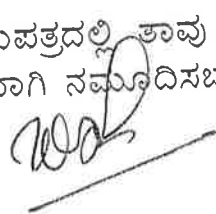 ುಪತ್ರದಲ್ಲಿ ತಾವು
ಾಗಿ ನಮೂದಿಸಬ